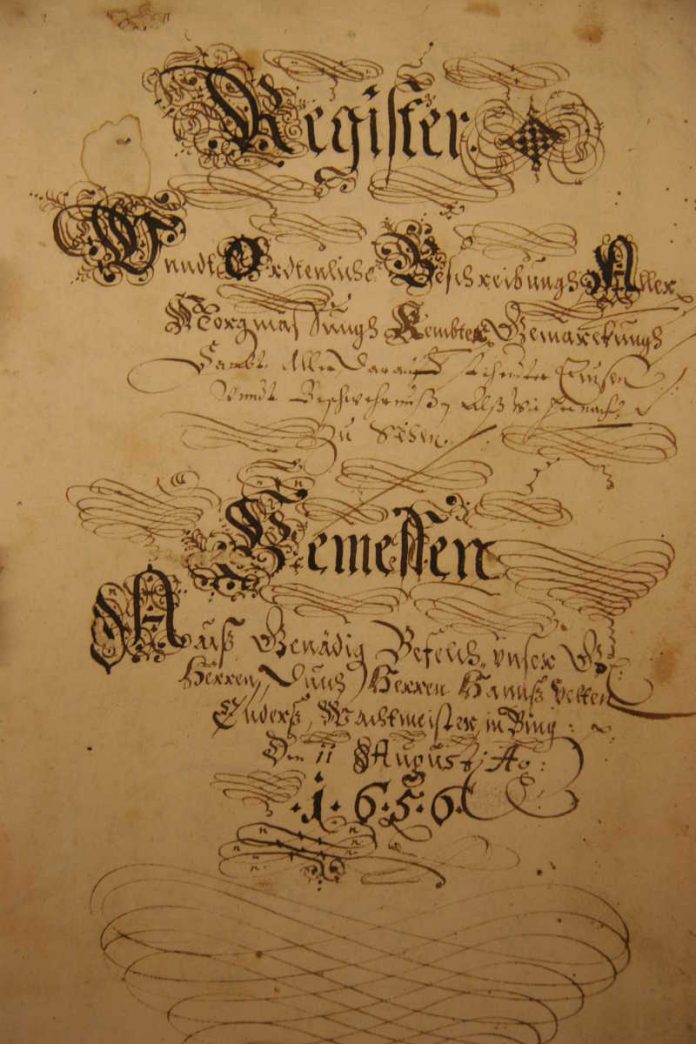 Register
Unndt Ordtenliche Beschreibungh Aller
Morgmassungh Kembter Gemarckungh
Sambt Aller Darauff stehenter
Unndt Beschwehrnußen Alß wie hernach
Zu Sehen
Gemessen
Auß Genädig Befelch unser G
Herren, Durch Herren Hannß Velten
Enderß, Wachtmeister in Bing:
Den 11 Augusti Ao:
.1.6.5.6.